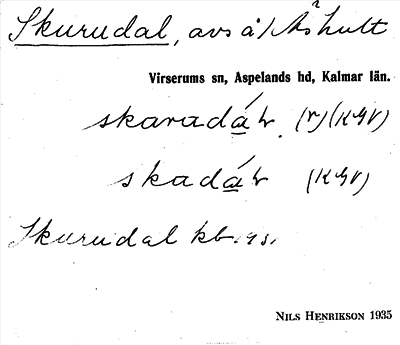 Skurudal, avs å/ Åshult
Virserums sn, Aspelands hd, Kalmar län.
skaradá
skadá
Skurudal kb.
NILS HENRIKSON 1935